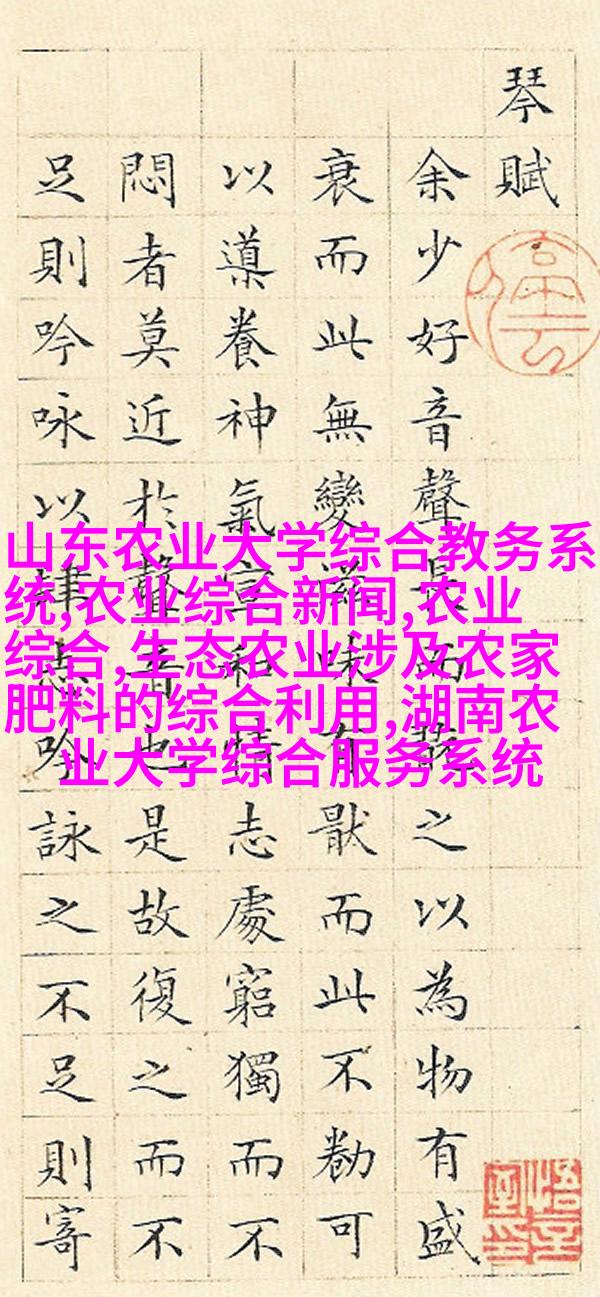 琴賦
余少好音聲長而翫之以為物有盛
衰而此無變滋味有猒而此不勌可
以導養神氣宣和情志處窮獨而不
悶者莫近於聲音也是故復之而不
足則吟咏以肆志吟詠之不足則寄
山东农业大学综合教务系
统,农业综合新闻,农业
综合,生态农业涉及农家
肥料的综合利用,湖南农
业大学综合服务系统